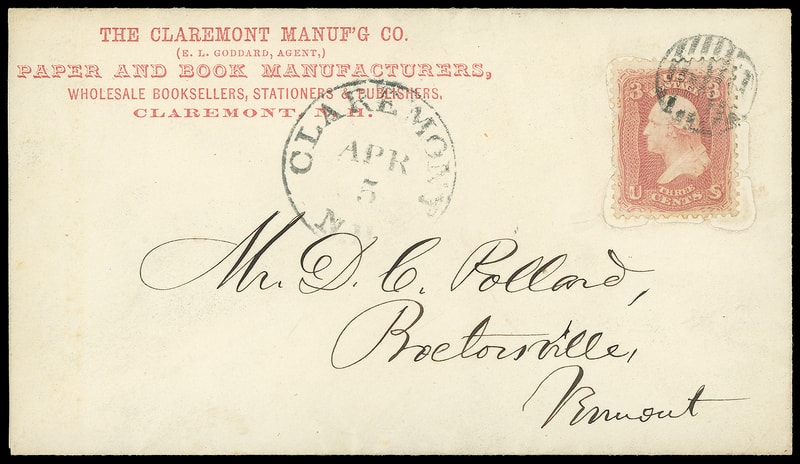 THE CLAREMONT MANUF'G CO.
(E. L. GODDARD, AGENT,)
PAPER AND BOOK MANUFACTURERS,
WHOLESALE BOOKSELLERS, STATIONERS & PUBLISHERS,
CLAREMONT, N.H.
CLAREMONT
APR
5
N.H.
3 3
POSTAGE
U THREE S
CENTS
Mr. D. C. Pollard,
Proctorsville,
Vermont